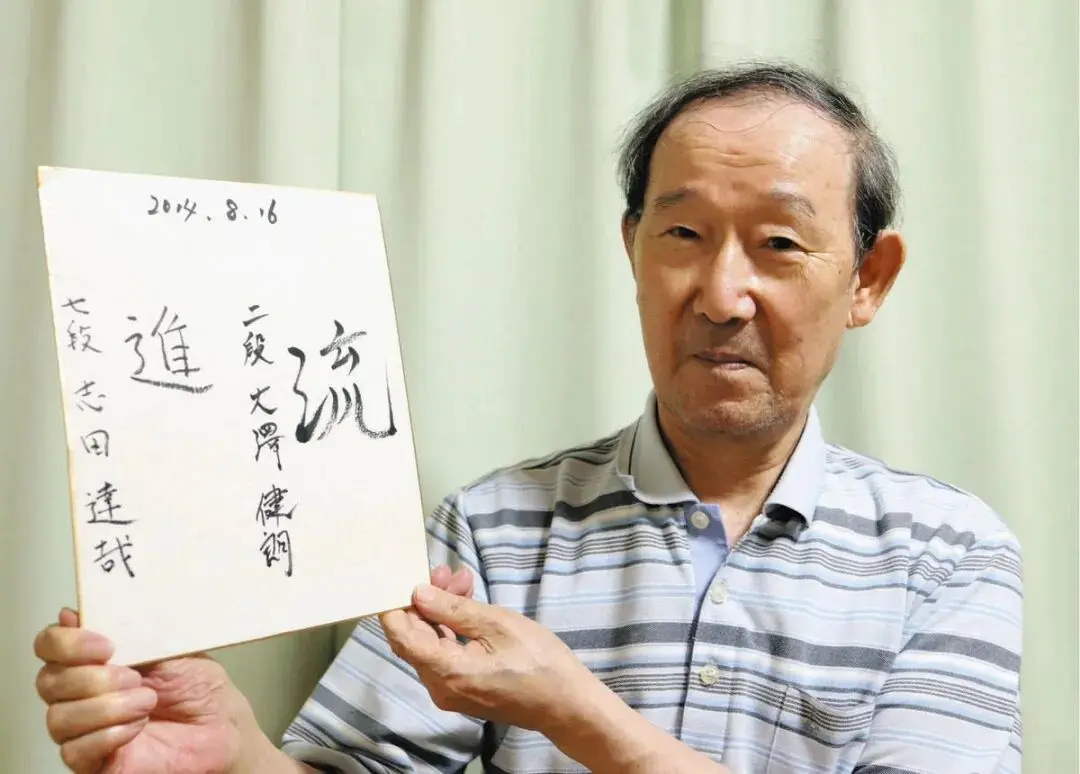 2014.8.16
流
二段 大澤健朗
進
七段 志田達哉